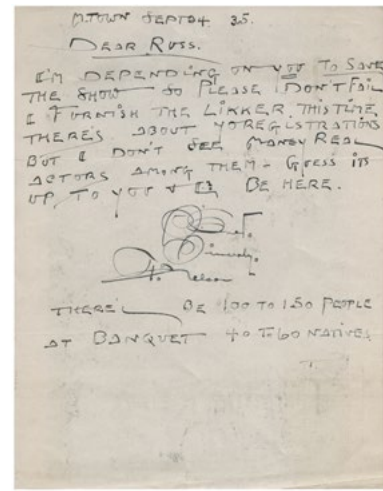 M.TOWN SEPT 24 35.
DEAR RUSS.
I'M DEPENDING ON YOU TO SAVE
THE SHOW SO PLEASE DON'T FAIL
I FURNISH THE LIKKER THIS TIME
THERE'S ABOUT 40 REGISTRATIONS
BUT I DON'T SEE MANEY REAL
ACTORS AMONG THEM - GUESS ITS
UP TO YOU BE HERE.
Sincerely.
Nelson
THERE'L BE 100 TO 150 PEOPLE
AT BANQUET 40 TO 60 NATIVES